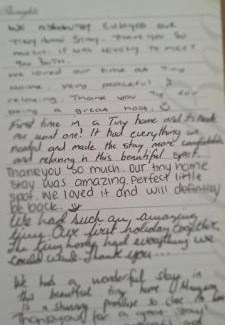 Thoughts
We absolutely enjoyed our
Tiny Home Stay. Thank you so
much. It was lovely to meet
you both.
We loved our time at Tiny
Home. Very peaceful &
relaxing. Thank you for
being a great host
First time in a Tiny home and
we want one! It had everything we
needed and made the stay more comfortable
and relaxing in this beautiful spot.
Thankyou so much. Our tiny home
stay was amazing. Perfect little
spot. We loved it and will definitley
be back.
We had such an amazing
time. Our first holiday together.
The tiny home had everything we
could want. Thank you
We had a wonderful stay in
this beautiful tiny home
is a stunning paradise so close to home
Thankyou for a great stay!